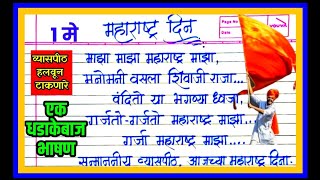 1 मे
महाराष्ट्र दिन
Page No
Date
व्यासपीठ
हलवून
टाकणारे
एक
धडाकेबाज
भाषण
माझा माझा महाराष्ट्र माझा,
मनोमनी वसला शिवाजी राजा...
वंदितो या भगव्या ध्वजा,
गर्जतो-गर्जतो महाराष्ट्र माझा...
गर्जा महाराष्ट्र माझा....
सन्माननीय व्यासपीठ, आजच्या महाराष्ट्र दिना-